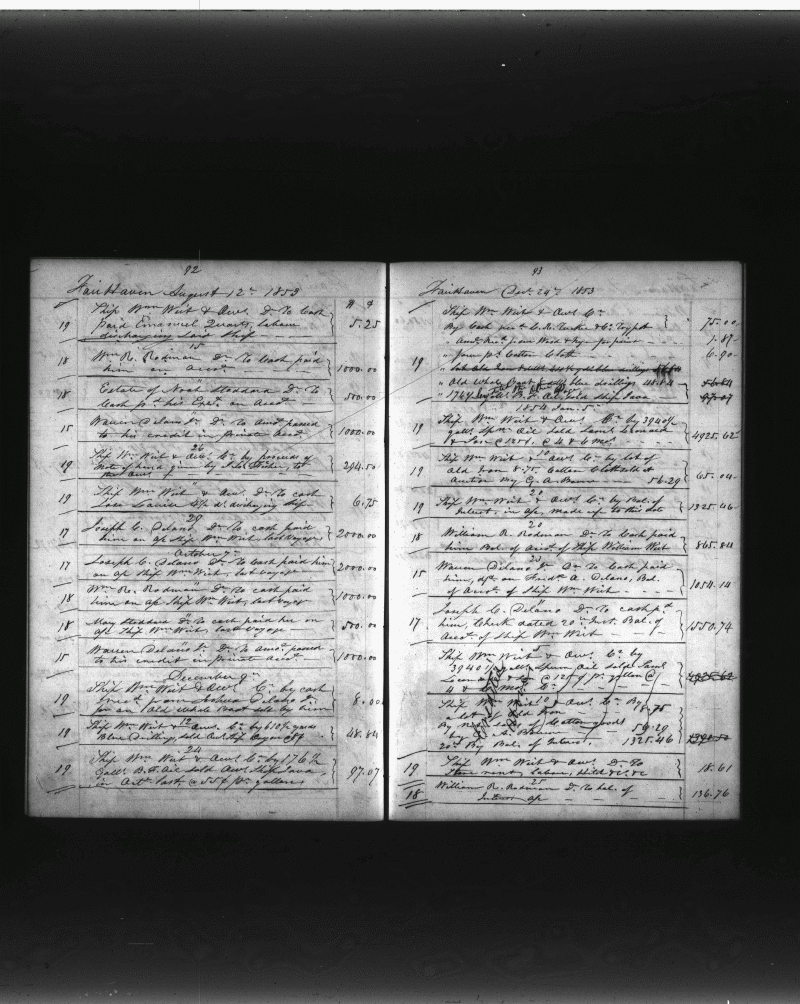 92
Fair Haven August 12th 1853
Ship Wm Wirt & Aws. Dr To Cash
19 paid Emanuel Quarts, labour 5.25
discharging Said Ship
18 Wm R. Rodman Dr To Cash paid
him on Acct 1000.00
18 Estate of Noah Stoddard Dr To
Cash pd his Exr. on Acct 500.00
15 Warren Delano Jr Dr To Amt passed
to his credit in private Acct 1000.00
26
19 Ship Wm Wirt & Aws. Cr by proceeds of
note of hand given by to 294.50
the Aws. of
19 Ship Wm Wirt & Aws. Dr To cash
discharging Ship 6.75
29
17 Joseph C. Delano Dr To cash paid
him on a/c Ship Wm Wirt, last voyage 2000.00
October
17 Joseph C. Delano Dr To Cash paid him
on a/c Ship Wm Wirt, last voyage 2000.00
18 Wm R. Rodman Dr To cash paid
him on a/c Ship Wm Wirt, last voyge 1000.00
18 Mary Stoddard Dr To cash paid her on
a/c Ship Wm Wirt, last voyage 500.00
15 Warren Delano Jr Dr To Amt passed
to his credit in private Acct 1000.00
December 9th
19 Ship Wm Wirt & Aws. Cr by cash
from Joshua Delano Jr 8.00
for an Old Whale Boat sold by him
12
19 Ship Wm Wirt & Aws. Cr by 610½ yards
Blue Drilling, sold 48.84
24
19 Ship Wm Wirt & Aws. Cr by 176½
Galls. B.F. Oil sold Aws. Ship Java 97.07
in Octr last, @ 55¢ pr gallon
93
Fair Haven Decr 24th 1853
Ship Wm Wirt & Aws. Cr
By Cash 75.00
1.87
19 " from 6.90
" Old Whale Boat blue drillings 48.84 56.84
" 176½ galls. B.F. Oil sold Ship Java 97.07
1854 Jan. 5
19 Ship Wm Wirt & Aws. Cr by 3940½
galls Spm Oil sold Saml Leonard
& Son @ 125¢, @ 4 & 6 Mos 4925.62
19 Ship Wm Wirt & Aws. Cr by lot of
Old Iron 8.75, Cotton Cloth sold at
Auction by G. A. Bourne 56.29 65.04
20
19 Ship Wm Wirt & Aws. Cr by Bal. of
Interest, in a/c, made up to this date 1325.46
20
18 William R. Rodman Dr To Cash paid
him Bal. of Acct. of Ship William Wirt 865.84
15 Warren Delano Jr Dr To Cash paid
him, dft. on Fredk A. Delano, Bal.
of Acct of Ship Wm Wirt 1054.14
17 Joseph C. Delano Dr To cash pd
him, Check dated 20th Inst. Bal. of
Acct of Ship Wm Wirt 1550.74
Ship Wm Wirt & Aws. Cr by
3940½ galls Spm Oil sold Saml
Leonard & Son @ 125¢ pr gallon @ 4925.62
4 & 6 Mos.
Ship Wm Wirt & Aws. Cr By
a lot of Old Iron 8.75
By nett sales of Cotton goods
by G. A. Bourne 56.29
20th By Bal. of Interest, 1325.46
25
19 Ship Wm Wirt & Aws. Dr To
Store rent, labour, &c 18.61
18 William R. Rodman Dr To bal. of
Interest a/c 136.76